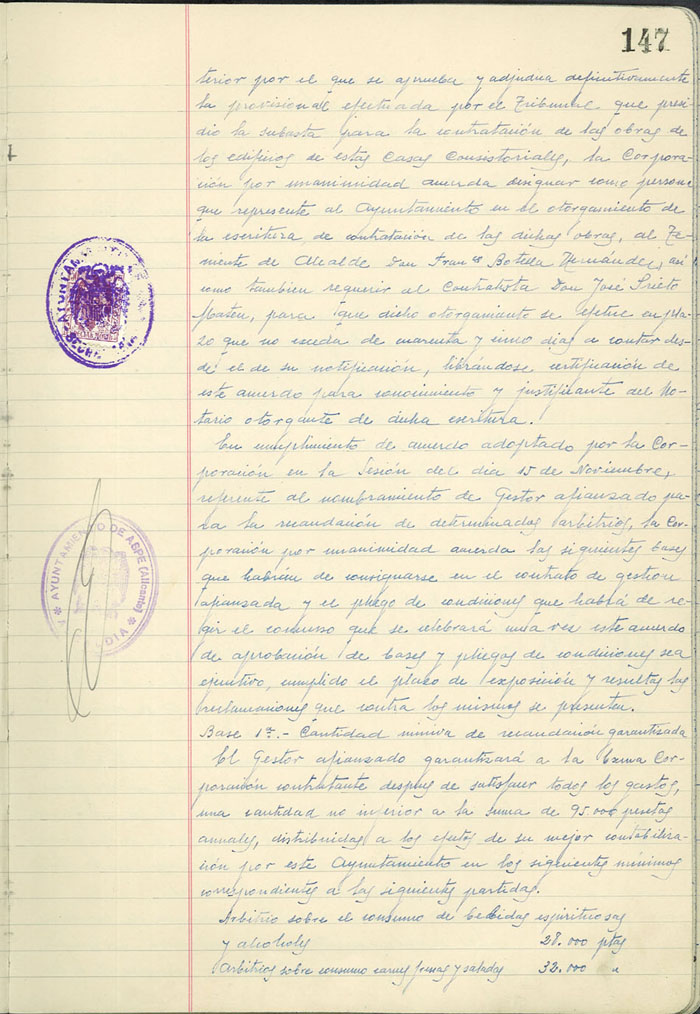 147
terior por el que se aprueba y adjudica definitivamente
la provisional efectuada por el Tribunal que presi-
dio la subasta para la contratación de las obras de
los edificios de estas Casas Consistoriales, la Corpora-
ción por unanimidad acuerda designar como persona
que represente al Ayuntamiento en el otorgamiento de
la escritura de contratación de las dichas obras, al Te-
niente de Alcalde Don Franco Botella Hernández, así
como tambien requerir al Contratista Don José Prieto
para que dicho otorgamiento se efectue en pla-
zo que no exceda de cuarenta y uno dias a contar des-
de el de su notificación, librándose certificación de
este acuerdo para conocimiento y justificante del No-
tario otorgante de dicha escritura.
En cumplimiento de acuerdo adoptado por la Cor-
poración en la Sesión del dia 15 de Noviembre,
referente al nombramiento de Gestor afianzado pa-
ra la recaudación de determinados arbitrios, la Cor-
poración por unanimidad acuerda las siguientes bases
que habrán de consignarse en el contrato de gestion
afianzada y el pliego de condiciones que habrá de re-
gir el concurso que se celebrará una vez este acuerdo
de aprobación de bases y pliegos de condiciones sea
ejecutivo, cumplido el plazo de exposición y resueltas las
reclamaciones que contra los mismos se presenten.
Base 1ª.- Cantidad minima de recaudación garantizada
El Gestor afianzado garantizará a la Excma Cor-
poración contratante despues de satisfacer todos los gastos,
una cantidad no inferior a la suma de 95.000 pesetas
anuales, distribuidas a los efectos de su mejor contabiliza-
ción por este Ayuntamiento en los siguientes minimos
correspondientes a las siguientes partidas.
Arbitrio sobre el consumo de bebidas espirituosas
y alcoholes 28.000 ptas
Arbitrios sobre consumo carnes frescas y saladas 32.000 "
AYUNTAMIENTO DE ASPE (Alicante)